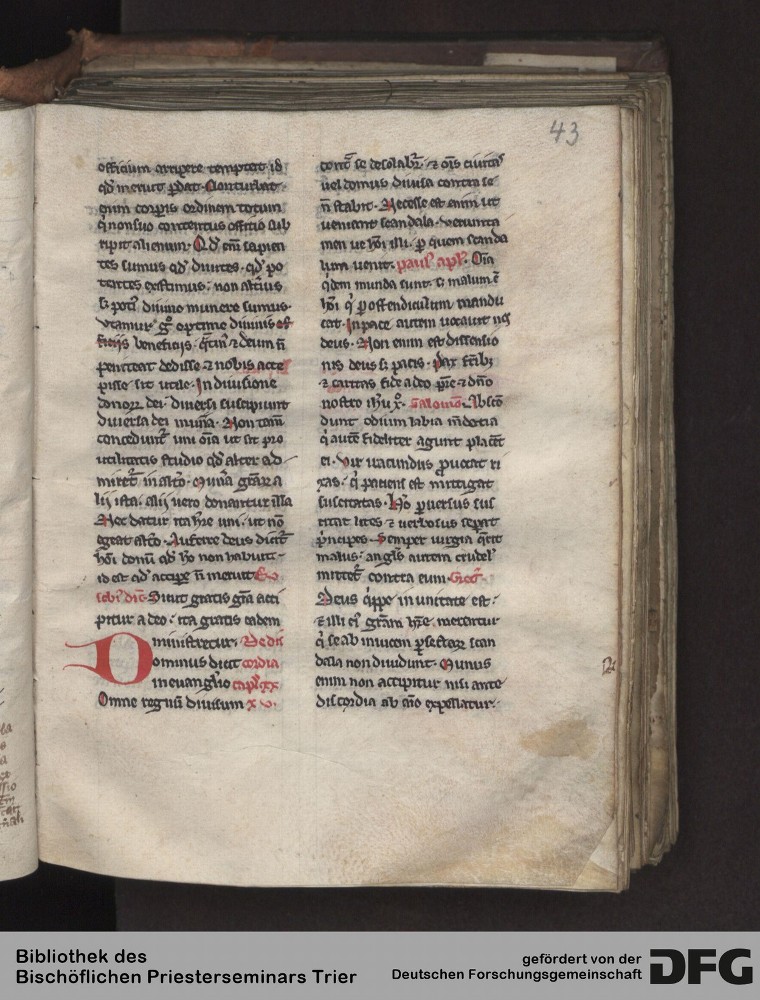 43
officium arripere temptat id
qd' meruit p̄dat. Conturbat
enim corp̄is ordinem totum
q' non suo contentus officio sub
ripit alienum. Qd' em̄ sapien
tes sumus qd' diuites. qd' po
tentes existimus. non alt'ius
s; poti' diuino munere sumus.
vtamur g° optime diuinis
beneficijs. q̄tin' ⁊ deum n̄
peniteat dedisse ⁊ nobis acce
pisse sit utile. In diuisione
donorꝝ dei. diuersi suscipiunt
diuersa dei mun̄a. Non tam̄
concedunt' uni om̄ia ut sit pro
utilitatis studio qd' alter ad
miret' in alt'o. mun̄a gr̄aꝝ a
lij ista. alij uero donantur illa
Nec datur ita h're uni. ut nō
egeat alt'o. Auferre deus dicit'
ho'i donū qd' ho non habuit
id est qd' accipe n̄ meruit
Sicut gratis gr̄a acci
pitur a deo. ita gratis eadem
ministretur. De dis
Dominus dicit cordia
in euanglio cap'l. xx
Omne regnū diuisum x v.
cont̄ se desolabr̄. ⁊ om̄s ciuitas
uel domus diuisa contra se
n̄ stabit. Necesse est enim ut
ueniant scandala. verumta
men ue ho'i illi. ꝑ quem scanda
lum uenit. paul' apl'. Om̄ia
q'dem munda sunt. s; malum ē
ho'i q' ꝑ offendiculum mandu
cat. In pace autem uocauit nos
deus. Non enim est dissensio
nis deus s; pacis. Pax fr̄ib;
⁊ caritas fide a deo pr̄e ⁊ dn̄o
nostro ih'u x°. Salomō. Abscon
dunt odium labia mendacia
q' aut̄e fideliter agunt placēt
ei. Vir iracundus ꝓuocat ri
xas. q' patiens est mittigat
suscitatas. Ho ꝑuersus sus
citat lites ⁊ uerbosus sep̄at
p'ncipes. Semper iurgia q̄rit
malus. angl's autem crudel'
mittet' contra eum. Greg'.
Deus q'ppe in unitate est.
⁊ illi ei' gr̄am h'r̄e merentur
q' se ab inuicem ꝑ sectarꝝ scan
dala non diuidunt. Munus
enim non accipitur nisi ante
discordia ab aīo expellatur.
Bibliothek des
Bischöflichen Priesterseminars Trier
gefördert von der
Deutschen Forschungsgemeinschaft
DFG